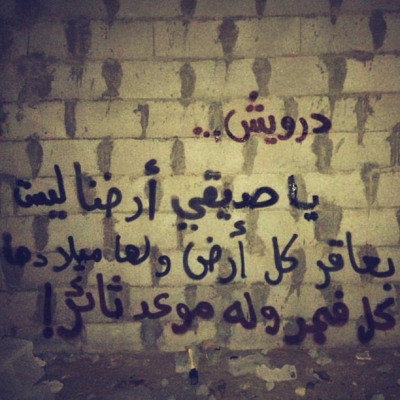 درويش...
يا صديقي أرضنا ليست
بعاقر كل أرض ولها ميلادها
كل فجر وله موعد ثائر!